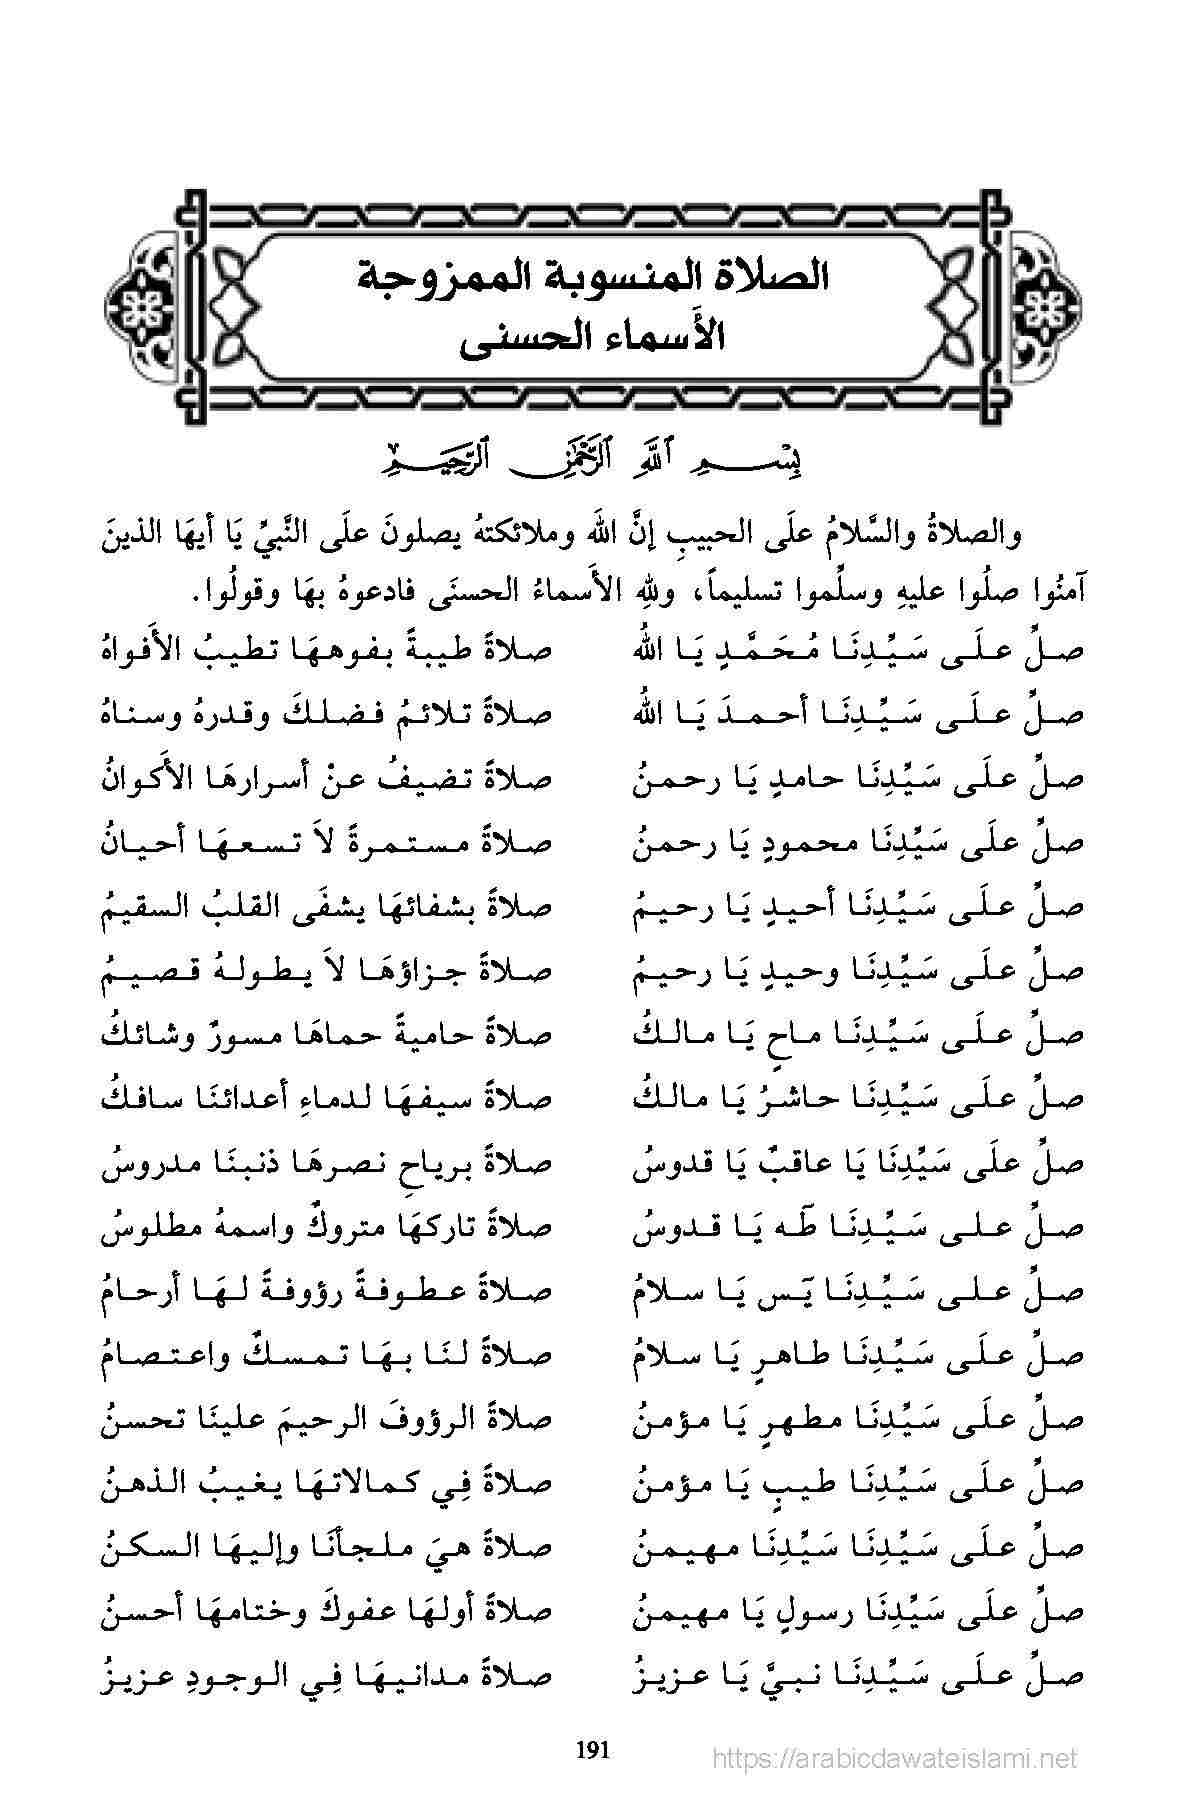 الصلاة المنسوبة الممزوجة
الأَسماء الحسنى
بِسْمِ ٱللَّهِ ٱلرَّحْمَٰنِ ٱلرَّحِيمِ
والصلاةُ والسَّلامُ علَى الحبيبِ إنَّ اللهَ وملائكتهُ يصلونَ علَى النَّبيِّ يَا أيهَا الذينَ
آمنُوا صلُوا عليهِ وسلِّموا تسليماً، وللهِ الأَسماءُ الحسنَى فادعوهُ بهَا وقولُوا.
صلِّ علَى سَيِّدِنَا مُحَمَّدٍ يَا اللهُ صلاةً طيبةً بفوههَا تطيبُ الأَفواهُ
صلِّ علَى سَيِّدِنَا أحمدَ يَا اللهُ صلاةً تلائمُ فضلكَ وقدرهُ وسناهُ
صلِّ علَى سَيِّدِنَا حامدٍ يَا رحمنُ صلاةً تضيفُ عنْ أسرارهَا الأَكوانُ
صلِّ علَى سَيِّدِنَا محمودٍ يَا رحمنُ صلاةً مستمرةً لاَ تسعهَا أحيانُ
صلِّ علَى سَيِّدِنَا أحيدٍ يَا رحيمُ صلاةً بشفائهَا يشفَى القلبُ السقيمُ
صلِّ علَى سَيِّدِنَا وحيدٍ يَا رحيمُ صلاةً جزاؤهَا لاَ يطولهُ قصيمُ
صلِّ علَى سَيِّدِنَا ماحٍ يَا مالكُ صلاةً حاميةً حماهَا مسورٌ وشائكُ
صلِّ علَى سَيِّدِنَا حاشرُ يَا مالكُ صلاةً سيفهَا لدماءِ أعدائنَا سافكُ
صلِّ علَى سَيِّدِنَا يَا عاقبٌ يَا قدوسُ صلاةً برياحِ نصرهَا ذنبنَا مدروسُ
صلِّ على سَيِّدِنَا طٓه يَا قدوسُ صلاةً تاركهَا متروكٌ واسمهُ مطلوسُ
صلِّ على سَيِّدِنَا يٓس يَا سلامُ صلاةً عطوفةً رؤوفةً لهَا أرحامُ
صلِّ علَى سَيِّدِنَا طاهرٍ يَا سلامُ صلاةً لنَا بهَا تمسكٌ واعتصامُ
صلِّ علَى سَيِّدِنَا مطهرٍ يَا مؤمنُ صلاةً الرؤوفَ الرحيمَ علينَا تحسنُ
صلِّ علَى سَيِّدِنَا طيبٍ يَا مؤمنُ صلاةً فِي كمالاتهَا يغيبُ الذهنُ
صلِّ علَى سَيِّدِنَا سَيِّدِنَا مهيمنُ صلاةً هيَ ملجأنَا وإليهَا السكنُ
صلِّ علَى سَيِّدِنَا رسولٍ يَا مهيمنُ صلاةً أولهَا عفوكَ وختامهَا أحسنُ
صلِّ علَى سَيِّدِنَا نبيَّ يَا عزيزُ صلاةً مدانيهَا فِي الوجودِ عزيزُ
191
https://arabicdawateislami.net